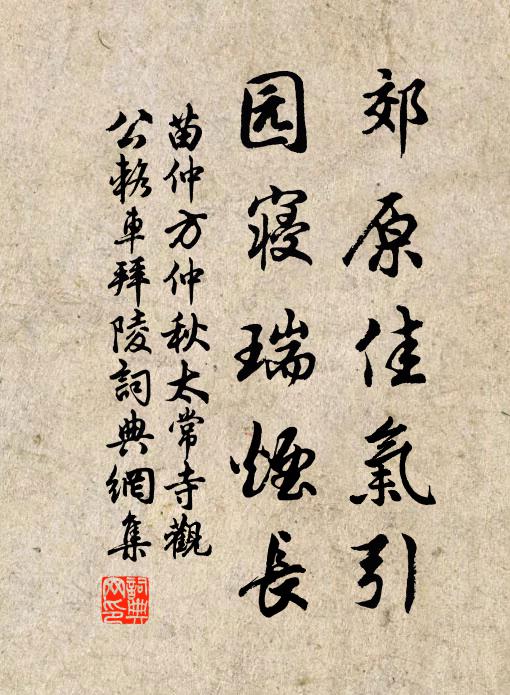 郊原佳氣引
园寝瑞煙長
苗仲方仲秋太常寺觀
公輅車拜陵詞典網集
詞典網印